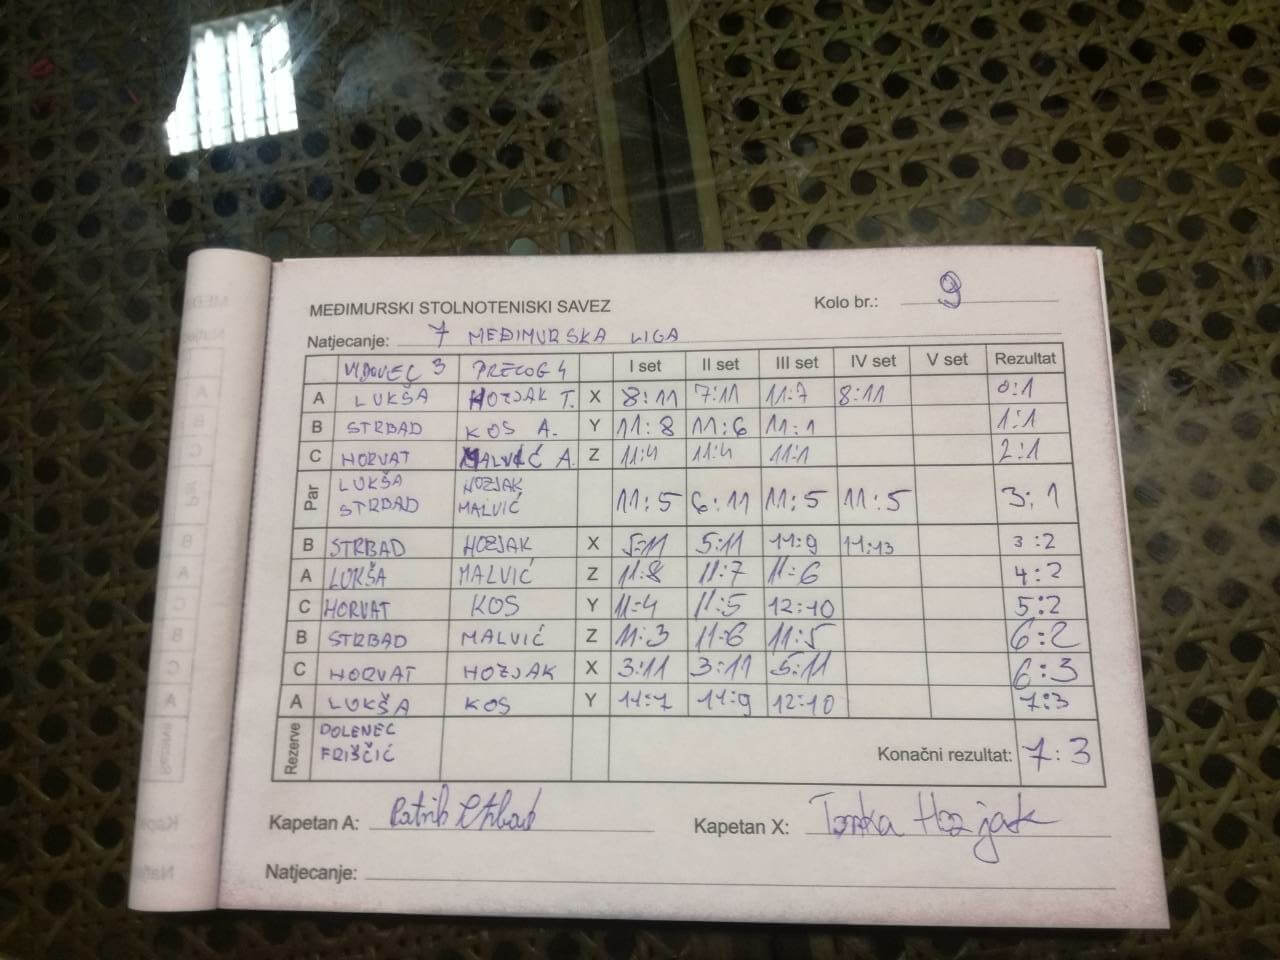 MEĐIMURSKI STOLNOTENISKI SAVEZ Kolo br.: 9
Natjecanje: 7 MEĐIMURSKA LIGA
VIDOVEC 3 PRELOG 4 I set II set III set IV set V set Rezultat
A LUKŠA HOZJAK T. X 8:11 7:11 11:7 8:11 0:1
B STRBAD KOS A. Y 11:8 11:6 11:1 1:1
C HORVAT MALVIĆ A. Z 11:4 11:4 11:1 2:1
Par LUKŠA STRBAD HOZJAK MALVIĆ 11:5 6:11 11:5 11:5 3:1
B STRBAD HOZJAK X 5:11 5:11 11:9 11:13 3:2
A LUKŠA MALVIĆ Z 11:8 11:7 11:6 4:2
C HORVAT KOS Y 11:4 11:5 12:10 5:2
B STRBAD MALVIĆ Z 11:3 11:6 11:5 6:2
C HORVAT HOZJAK X 3:11 3:11 5:11 6:3
A LUKŠA KOS Y 11:7 11:9 12:10 7:3
Rezerve DOLENEC FRIŠČIĆ Konačni rezultat: 7:3
Kapetan A: Patrik Strbad Kapetan X: Tonka Hozjak
Natjecanje: